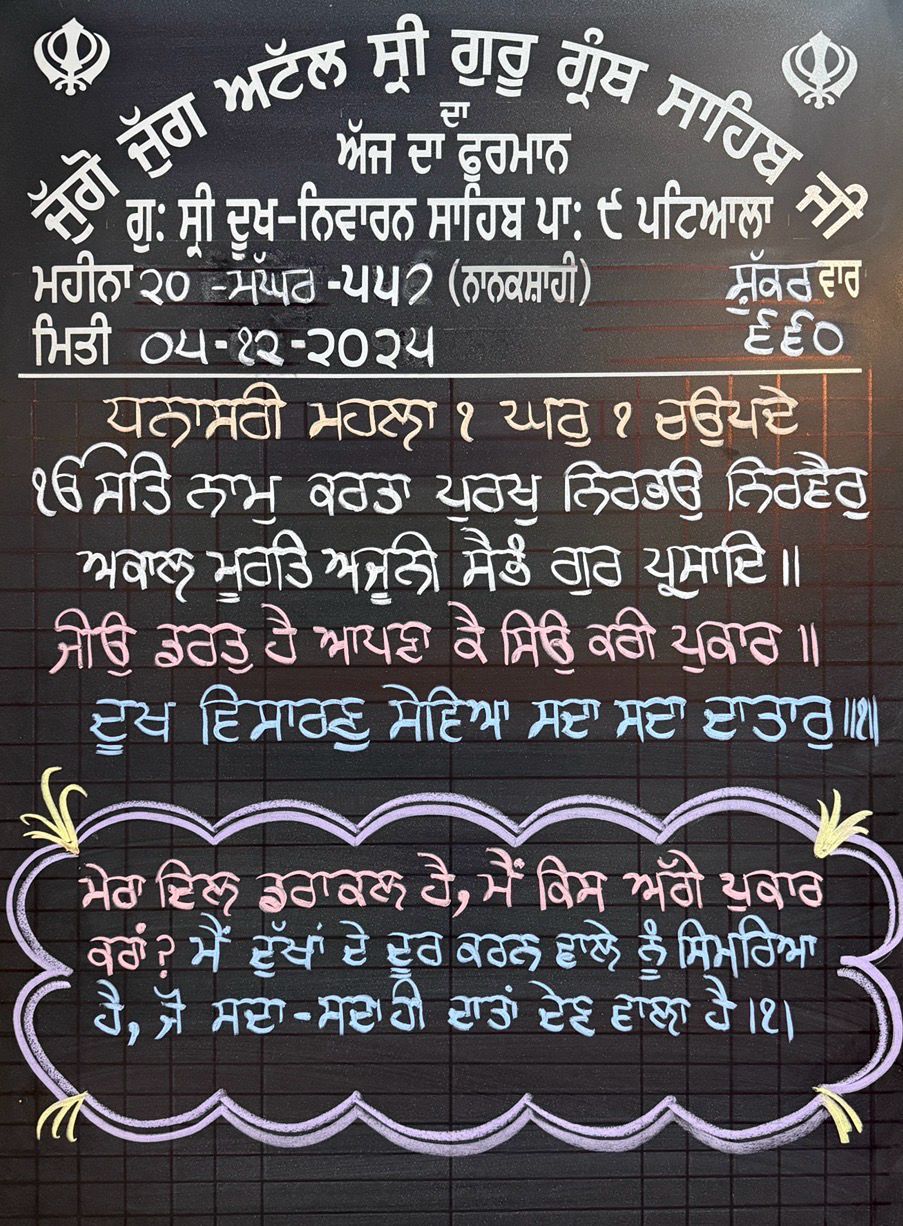 ਜੁੱਗੋ ਜੁੱਗ ਅਟੱਲ ਸ੍ਰੀ ਗੁਰੂ ਗ੍ਰੰਥ ਸਾਹਿਬ ਜੀ
ਦਾ
ਅੱਜ ਦਾ ਫੁਰਮਾਨ
ਗੁ: ਸ੍ਰੀ ਦੂਖ-ਨਿਵਾਰਨ ਸਾਹਿਬ ਪਾ: ੯ ਪਟਿਆਲਾ
ਮਹੀਨਾ ੨੦ -ਮੱਘਰ -੫੫੭ (ਨਾਨਕਸ਼ਾਹੀ) ਸ਼ੁੱਕਰਵਾਰ
ਮਿਤੀ ੦੫-੧੨-੨੦੨੫ ੬੬੦
ਧਨਾਸਰੀ ਮਹਲਾ ੧ ਘਰੁ ੧ ਚਉਪਦੇ
ੴ ਸਤਿ ਨਾਮੁ ਕਰਤਾ ਪੁਰਖੁ ਨਿਰਭਉ ਨਿਰਵੈਰੁ
ਅਕਾਲ ਮੂਰਤਿ ਅਜੂਨੀ ਸੈਭੰ ਗੁਰ ਪ੍ਰਸਾਦਿ ॥
ਜੀਉ ਡਰਤੁ ਹੈ ਆਪਣਾ ਕੈ ਸਿਉ ਕਰੀ ਪੁਕਾਰ ॥
ਦੂਖ ਵਿਸਾਰਣੁ ਸੇਵਿਆ ਸਦਾ ਸਦਾ ਦਾਤਾਰੁ ॥੧॥
ਮੇਰਾ ਦਿਲ ਡਰਾਕਲ ਹੈ, ਮੈਂ ਕਿਸ ਅੱਗੇ ਪੁਕਾਰ
ਕਰਾਂ? ਮੈਂ ਦੁੱਖਾਂ ਦੇ ਦੂਰ ਕਰਨ ਵਾਲੇ ਨੂੰ ਸਿਮਰਿਆ
ਹੈ, ਜੋ ਸਦਾ-ਸਦਾ ਹੀ ਦਾਤਾਂ ਦੇਣ ਵਾਲਾ ਹੈ।੧।